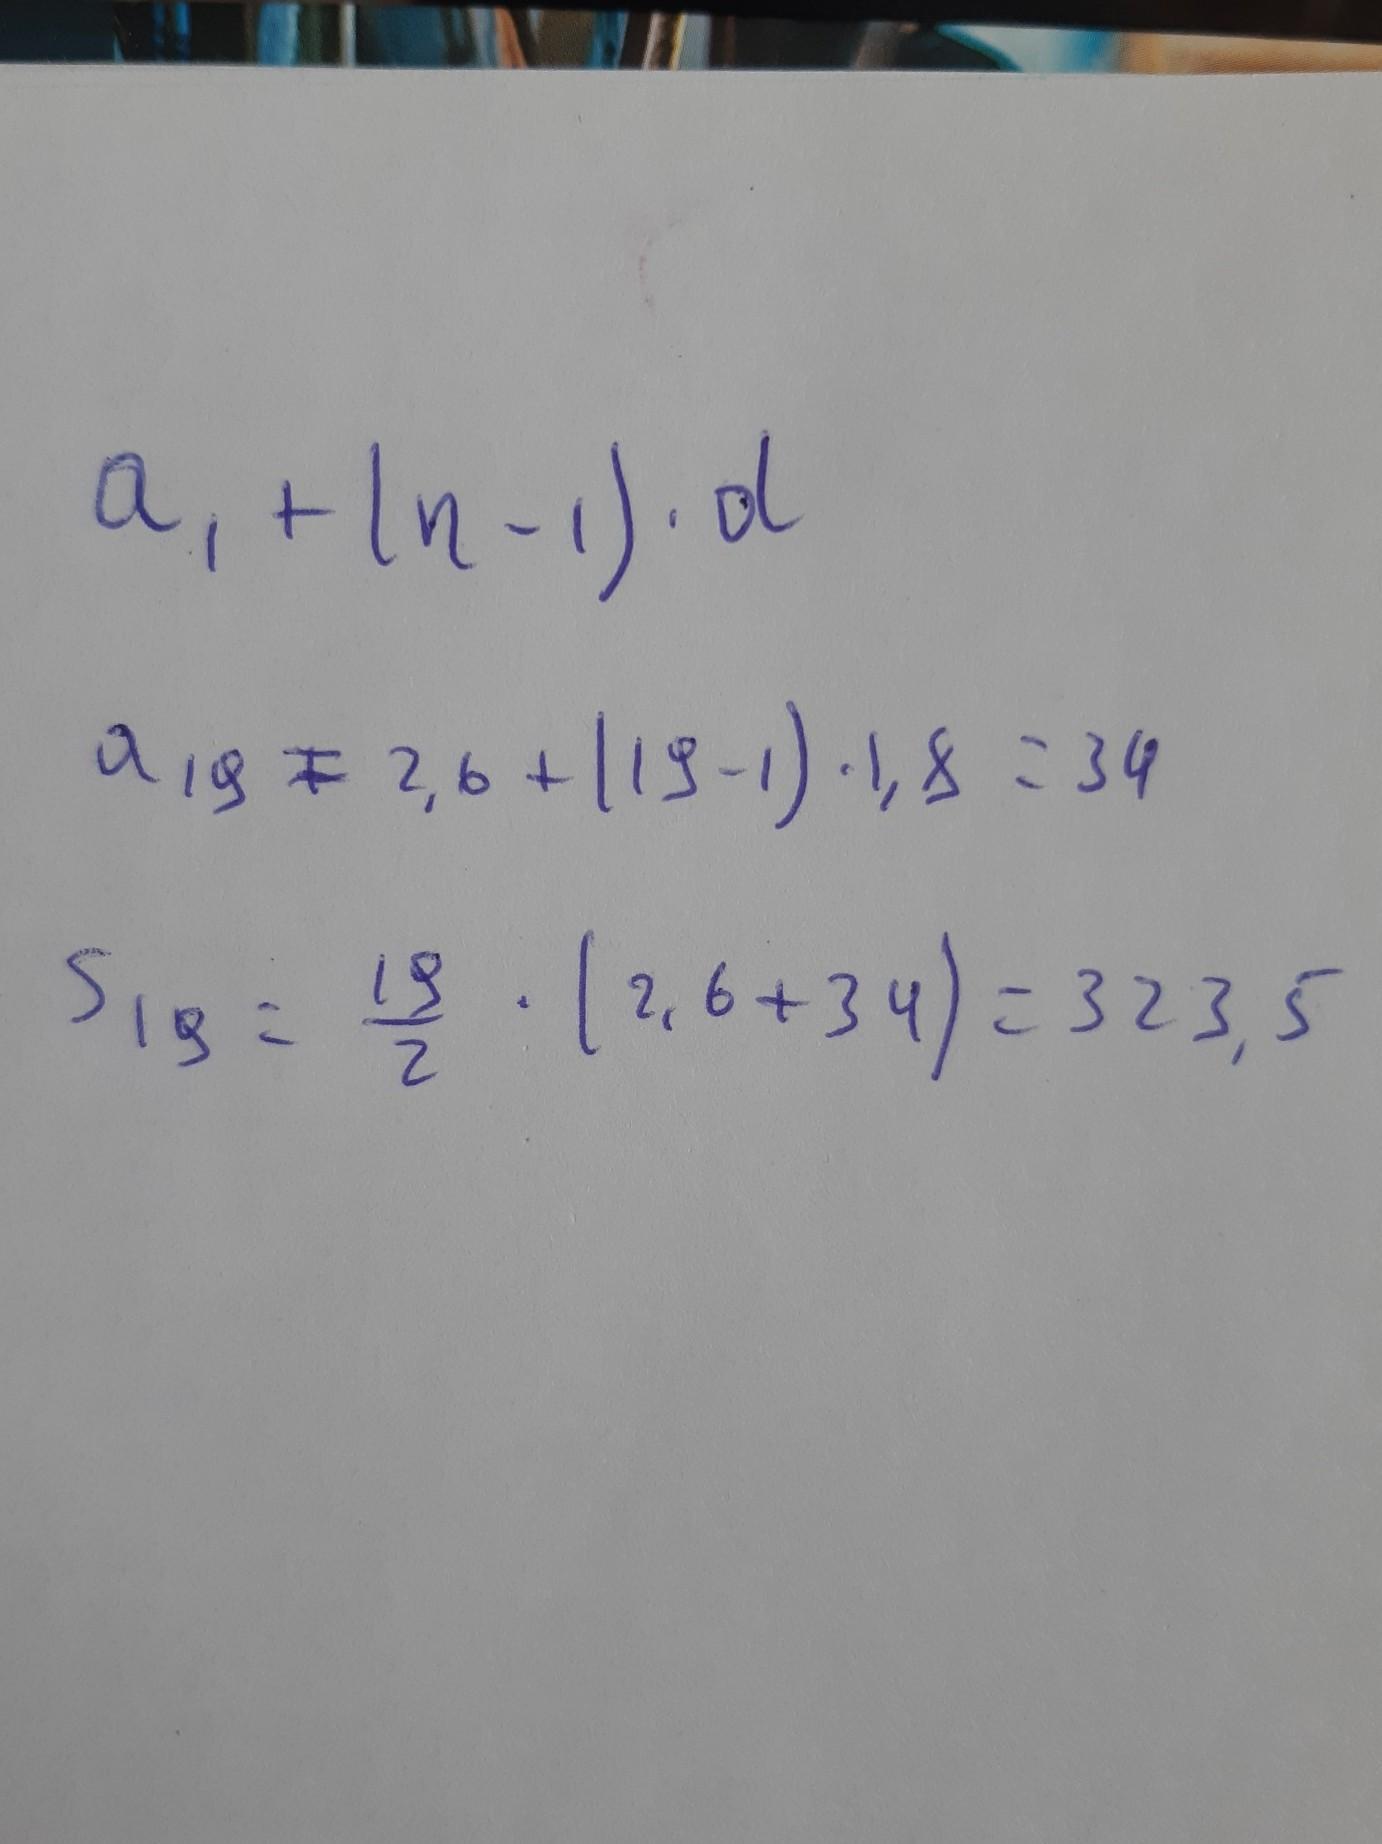 a₁ + (n - 1) · d
a₁₉ = 2,6 + (19 - 1) · 1,8 = 34
S₁₉ = 19/2 · (2,6 + 34) = 323,5